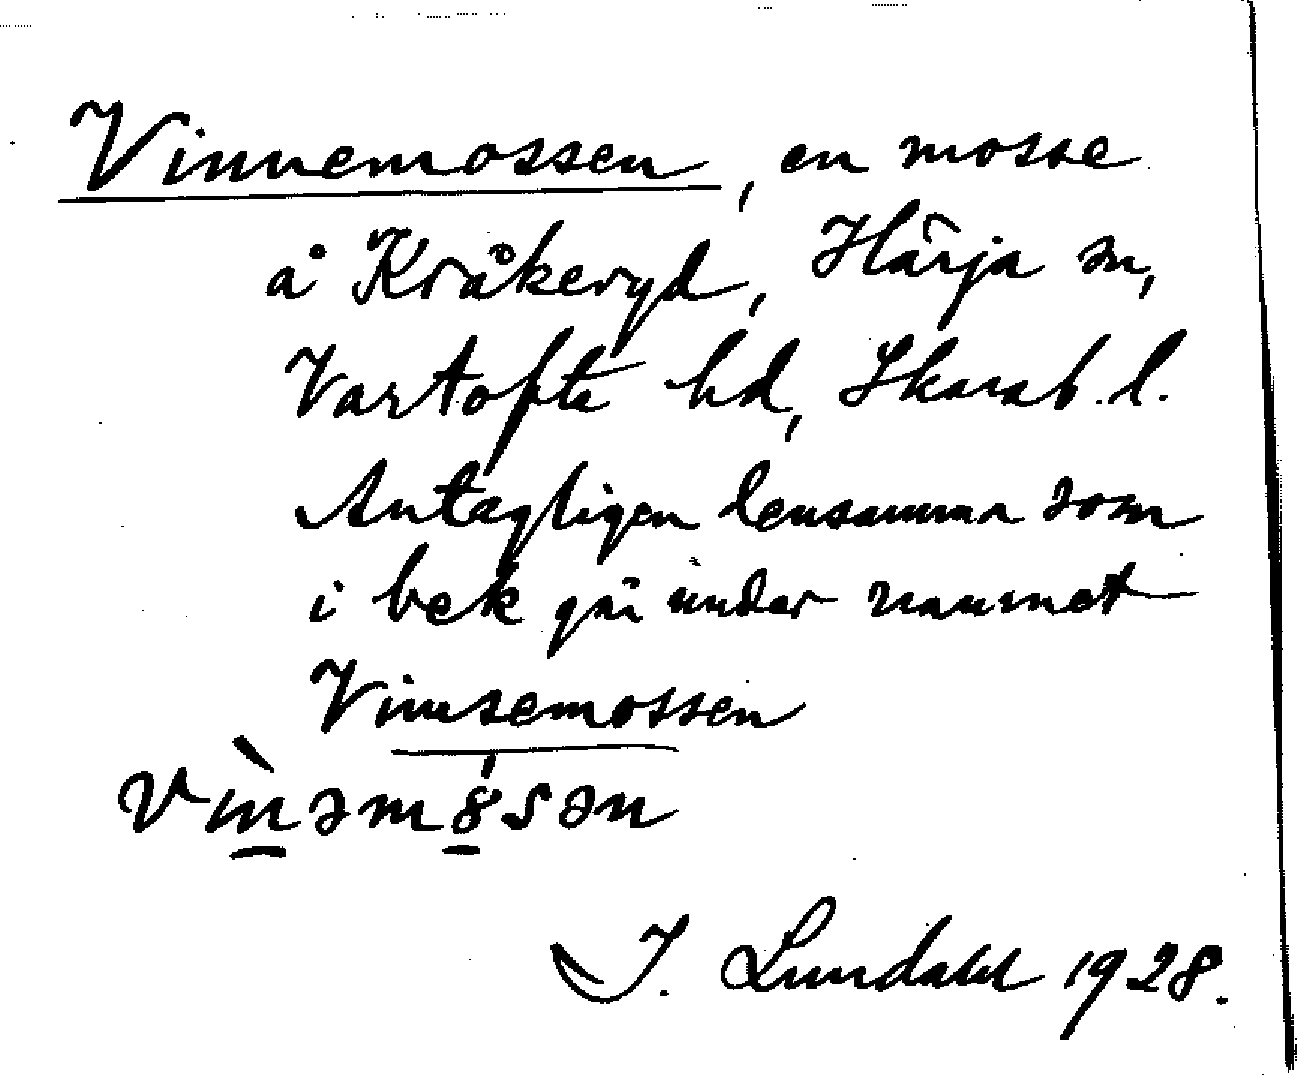 Vinnemossen, en mosse
å Kråkeryd, Härja sn,
Vartofta hd, Skarab. l.
Antagligen densamma som
i bek går under namnet
Vinnsemossen
Vìnəmösən
I. Lundahl 1928.